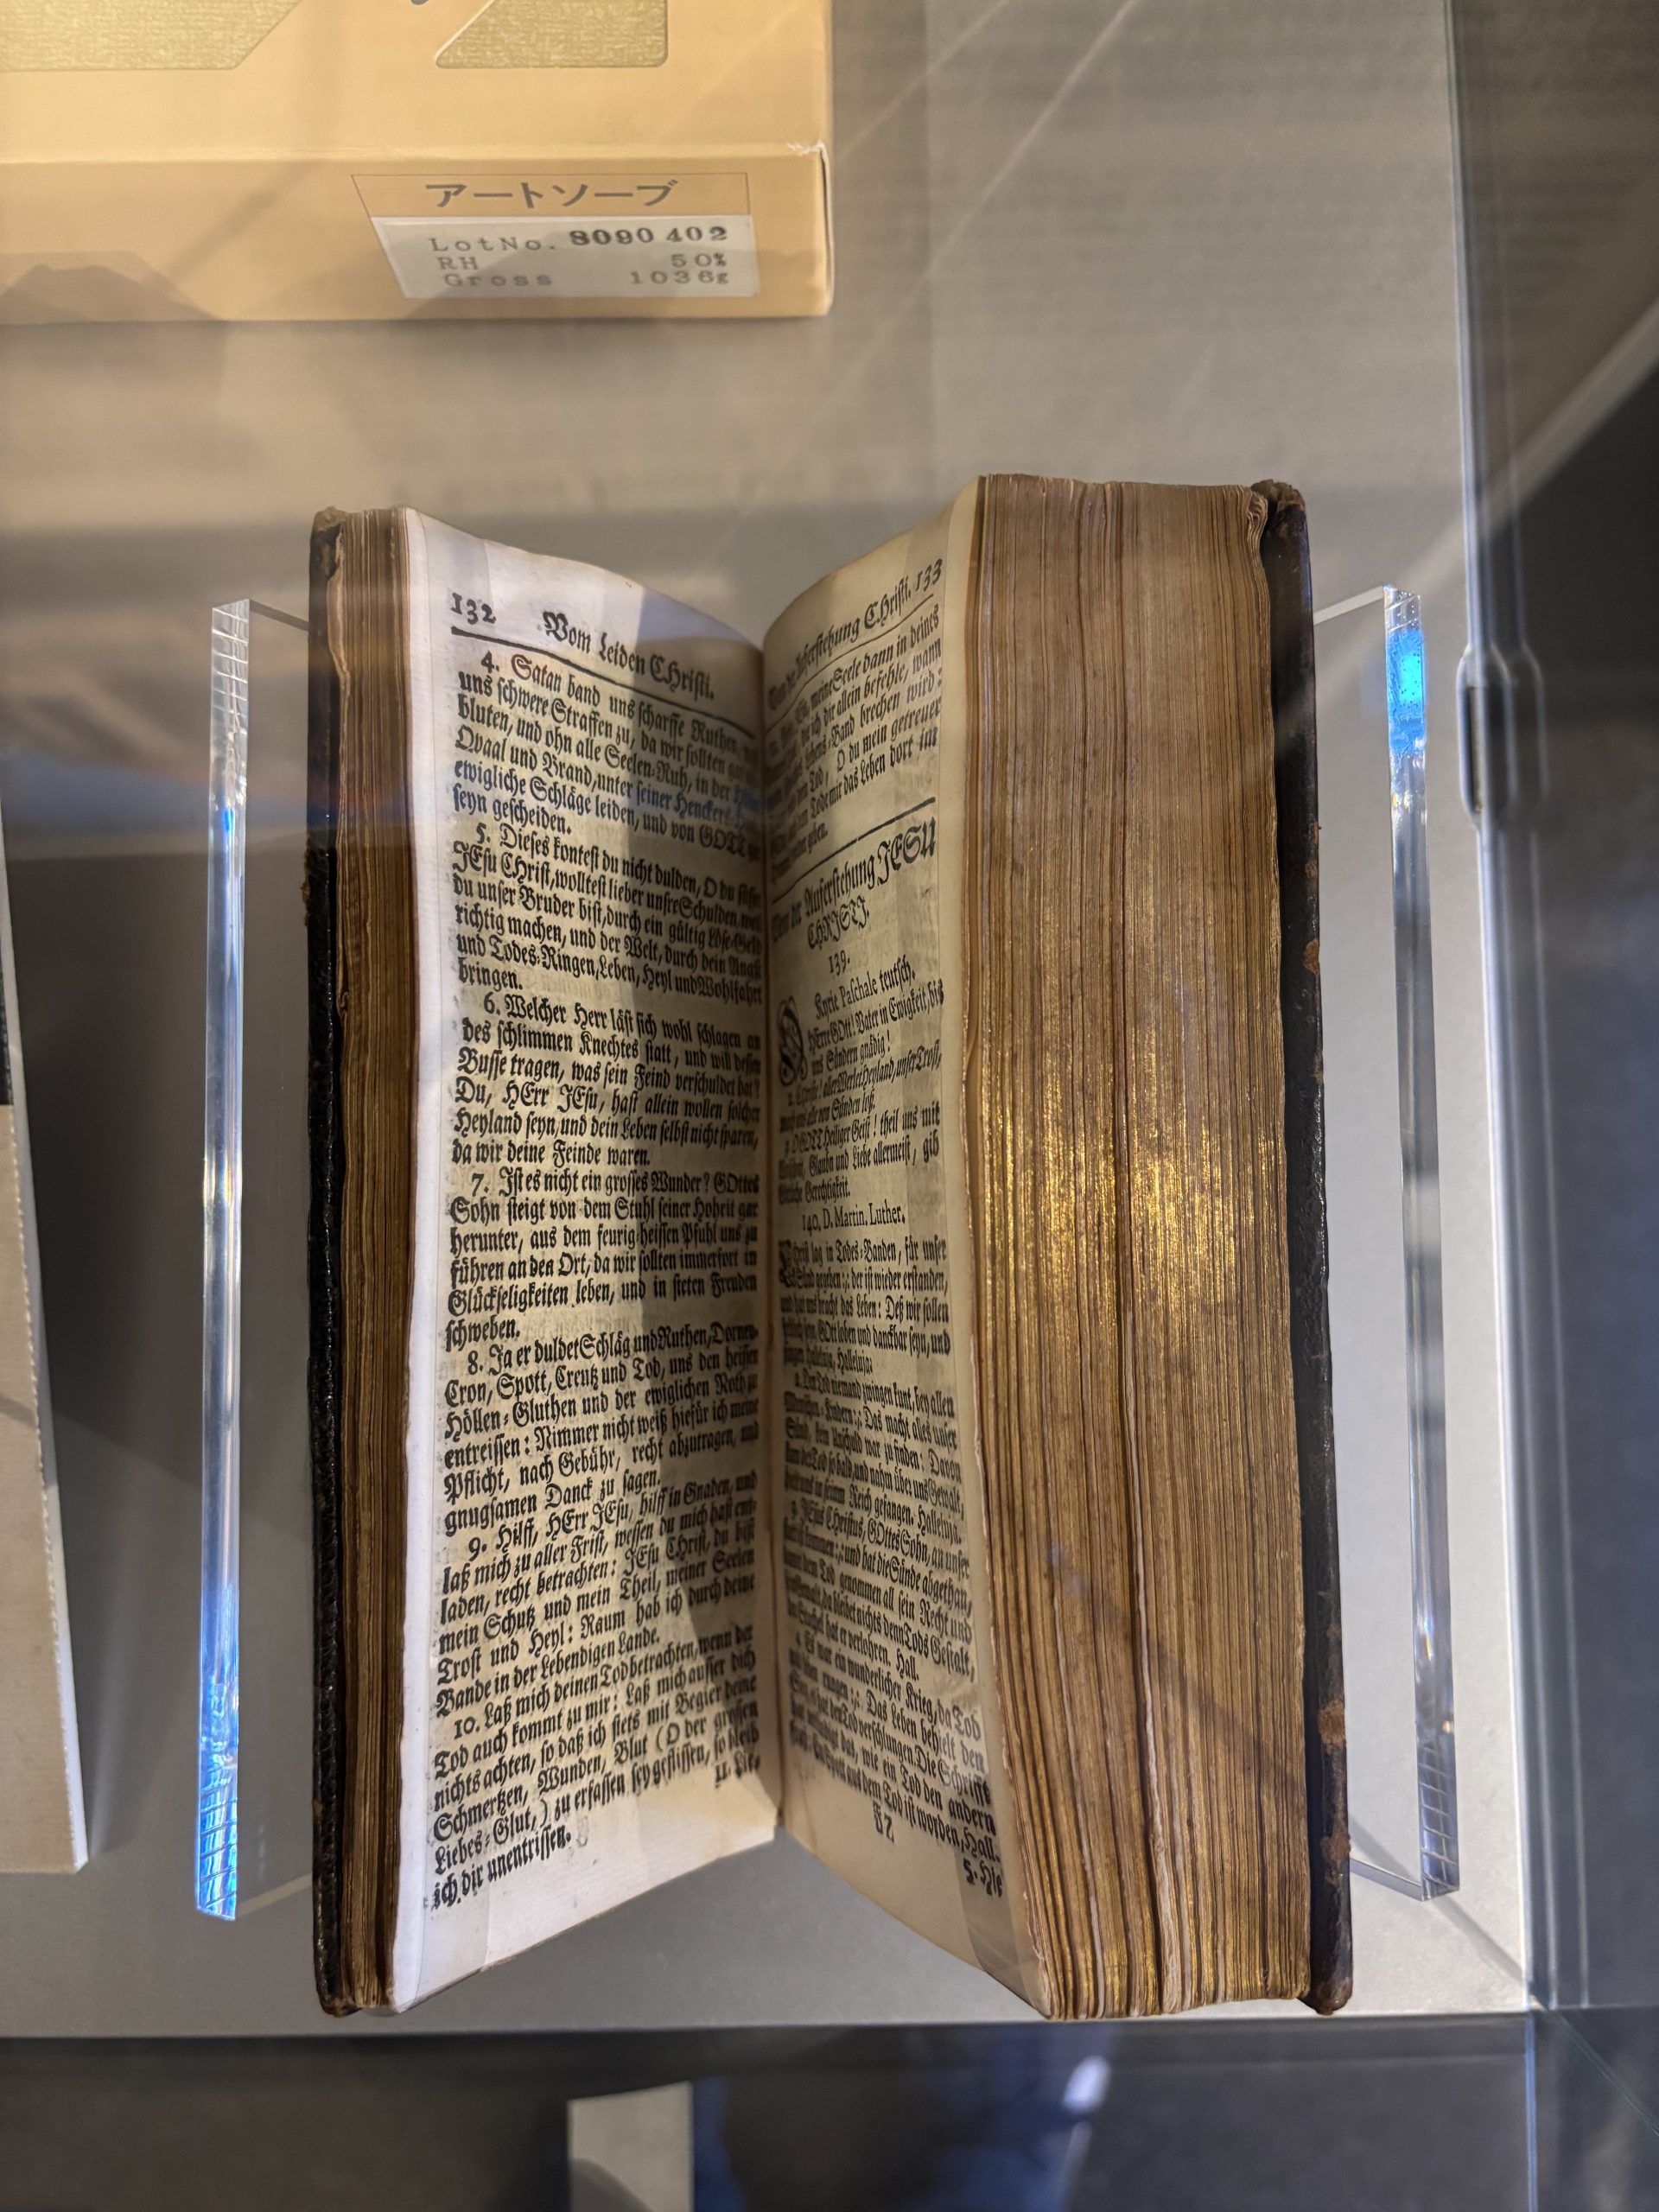 アートソーブ
LotNo. 8090402
RH 50%
Gross 1036g
132 Vom Leiden CHristi.
4. Satan band uns scharffe Ruthen,
uns schwere Straffen zu, da wir sollten
bluten, und ohn alle Seelen-Ruh, in der
Qvaal und Brand, unter seiner Henckers
ewigliche Schläge leiden, und von GOTT
seyn gescheiden.
5. Dieses kontest du nicht dulden, O du
JEsu CHrist, wolltest lieber unsre Schulden, weil
du unser Bruder bist, durch ein gültig Löse-Geld
richtig machen, und der Welt, durch dein Angst
und Todes-Ringen, Leben, Heyl und Wohlfahrt
bringen.
6. Welcher Herr läst sich wohl schlagen an
des schlimmen Knechtes statt, und will dessen
Busse tragen, was sein Feind verschuldet hat?
Du, HErr JEsu, hast allein wollen solcher
Heyland seyn, und dein Leben selbst nicht sparen,
da wir deine Feinde waren.
7. Ist es nicht ein grosses Wunder? GOttes
Sohn steigt von dem Stuhl seiner Hoheit gar
herunter, aus dem feurig-heissen Pfuhl uns zu
führen an den Ort, da wir sollten immerfort in
Glückseligkeiten leben, und in steten Freuden
schweben.
8. Ja er duldet Schläg und Ruthen, Dornen-
Cron, Spott, Creutz und Tod, uns den heissen
Höllen-Gluthen und der ewiglichen Noth zu
entreissen: Nimmer nicht weiß hiefür ich meine
Pflicht, nach Gebühr, recht abzutragen, und
gnugsamen Danck zu sagen.
9. Hilff, HErr JEsu, hilff in Gnaden, und
laß mich zu aller Frist, wessen du mich hast ent-
laden, recht betrachten: JEsu CHrist, du bist
mein Schutz und mein Theil, meiner Seelen
Trost und Heyl: Raum hab ich durch deine
Bande in der Lebendigen Lande.
10. Laß mich deinen Tod betrachten, wenn der
Tod auch kommt zu mir: Laß mich ausser dich
nichts achten, so daß ich stets mit Begier deine
Schmertzen, Wunden, Blut (O der grossen
Liebes-Glut,) zu erfassen sey geflissen, so bleib
ich dir unentrissen.
11. Lie-
Von der Auferstehung CHristi. 133
meine Seele dann in deines
die ich dir allein befehle, wann
Lebens-Band brechen wird:
Tod, O du mein getreuer
Tode mir das Leben dort im
geben.
Von der Auferstehung JESU
CHRISTI.
139.
Kyrie Paschale teutsch.
O HErre GOtt! Vater in Ewigkeit, bis
uns Sündern gnädig!
2. Christe! aller Welt Heyland, unser Trost,
mach uns alle von Sünden loß.
3. O GOTT Heiliger Geist! theil uns mit
Glaubn und Liebe allermeist, gib
Gerechtigkeit.
140. D. Martin. Luther.
CHrist lag in Todes-Banden, für unser
Sünd gegeben:,: der ist wieder erstanden,
und hat uns bracht das Leben: Deß wir sollen
frölich seyn, GOtt loben und danckbar seyn, und
singen Haleluja, Halleluja:
2. Den Tod niemand zwingen kunt, bey allen
Menschen-Kindern:,: Das macht alles unser
Sünd, kein Unschuld war zu finden: Davon
kam der Tod so bald, und nahm über uns Gewalt,
hielt uns in seinem Reich gefangen. Halleluja.
3. JEsus CHristus, GOttes Sohn, an unser
statt ist kommen:,: und hat die Sünde abgethan,
damit dem Tod genommen all sein Recht und
Gewalt, da bleibet nichts denn Tods Gestalt,
den Stachel hat er verlohren. Hall.
4. Es war ein wunderlicher Krieg, da Tod
und Leben rungen:,: Das Leben behielt den
Sieg, es hat den Tod verschlungen. Die Schrifft
hat verkündiget das, wie ein Tod den andern
fraß: Ein Spott aus dem Tod ist worden, Hall.
5. Hie